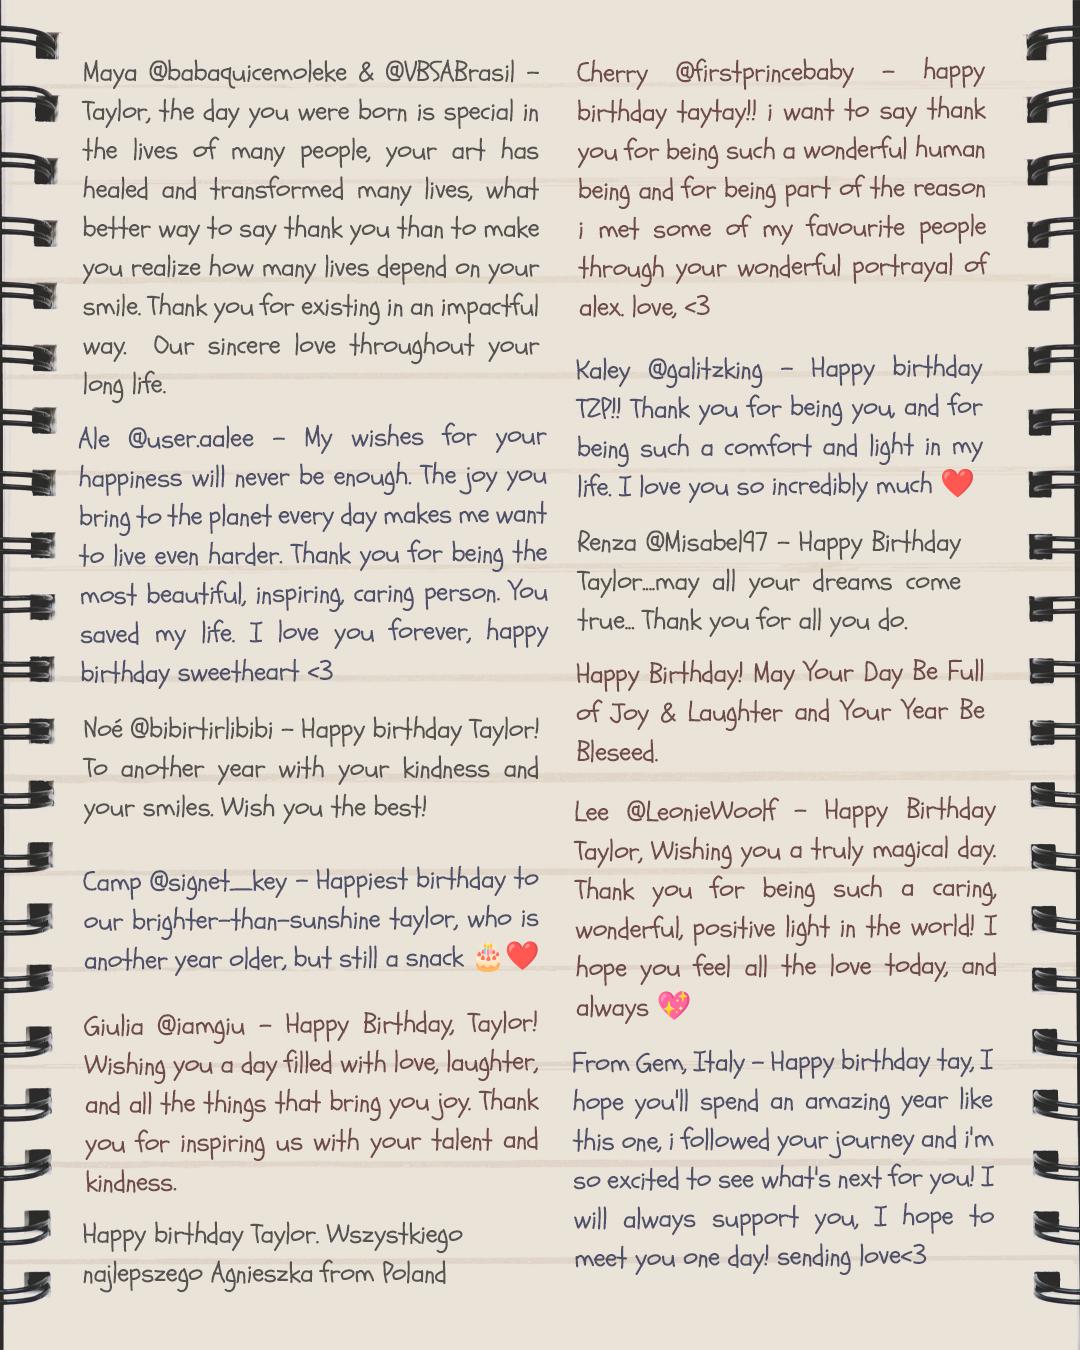 Maya @babaquicemoleke & @VBSABrasil -
Taylor, the day you were born is special in
the lives of many people, your art has
healed and transformed many lives, what
better way to say thank you than to make
you realize how many lives depend on your
smile. Thank you for existing in an impactful
way. Our sincere love throughout your
long life.
Ale @user.aalee - My wishes for your
happiness will never be enough. The joy you
bring to the planet every day makes me want
to live even harder. Thank you for being the
most beautiful, inspiring, caring person. You
saved my life. I love you forever, happy
birthday sweetheart <3
Noé @bibirtirlibibi - Happy birthday Taylor!
To another year with your kindness and
your smiles. Wish you the best!
Camp @signet__key - Happiest birthday to
our brighter-than-sunshine taylor, who is
another year older, but still a snack 🎂❤️
Giulia @iamgiu - Happy Birthday, Taylor!
Wishing you a day filled with love, laughter,
and all the things that bring you joy. Thank
you for inspiring us with your talent and
kindness.
Happy birthday Taylor. Wszystkiego
najlepszego Agnieszka from Poland
Cherry @firstprincebaby - happy
birthday taytay!! i want to say thank
you for being such a wonderful human
being and for being part of the reason
i met some of my favourite people
through your wonderful portrayal of
alex. love, <3
Kaley @galitzking - Happy birthday
TZP!! Thank you for being you, and for
being such a comfort and light in my
life. I love you so incredibly much ❤️
Renza @Misabel97 - Happy Birthday
Taylor....may all your dreams come
true... Thank you for all you do.
Happy Birthday! May Your Day Be Full
of Joy & Laughter and Your Year Be
Bleseed.
Lee @LeonieWoolf - Happy Birthday
Taylor, Wishing you a truly magical day.
Thank you for being such a caring,
wonderful, positive light in the world! I
hope you feel all the love today, and
always 💖
From Gem, Italy - Happy birthday tay, I
hope you'll spend an amazing year like
this one, i followed your journey and i'm
so excited to see what's next for you! I
will always support you, I hope to
meet you one day! sending love<3